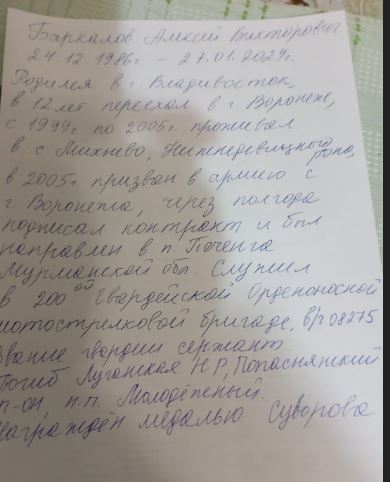 Баркалов Алексей Викторович
24.12.1986г. – 27.01.2024г.
Родился в г. Владивосток,
в 12 лет переехал в г Воронеж,
с 1999г по 2005г. проживал
в с. Михнево, Нижнедевицкого рона,
в 2005г. призван в армию с
г Воронежа, через полгода
подписал контракт и был
направлен в п. Печенга
Мурманской обл. Служил
в 200 ой Гвардейской Орденоносной
мотострелковой бригаде, в/ч 08275
Звание гвардии сержант.
Погиб Луганская НР, Попаснянский
р-он, н.п. Молодёжный.
Награждён медалью Суворова